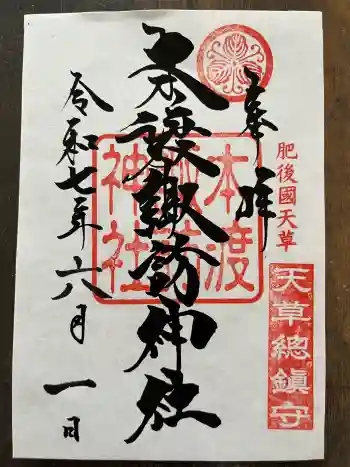 奉拝
肥後國天草
天草總鎮守
本渡諏訪神社
本渡諏訪神社
令和七年六月一日